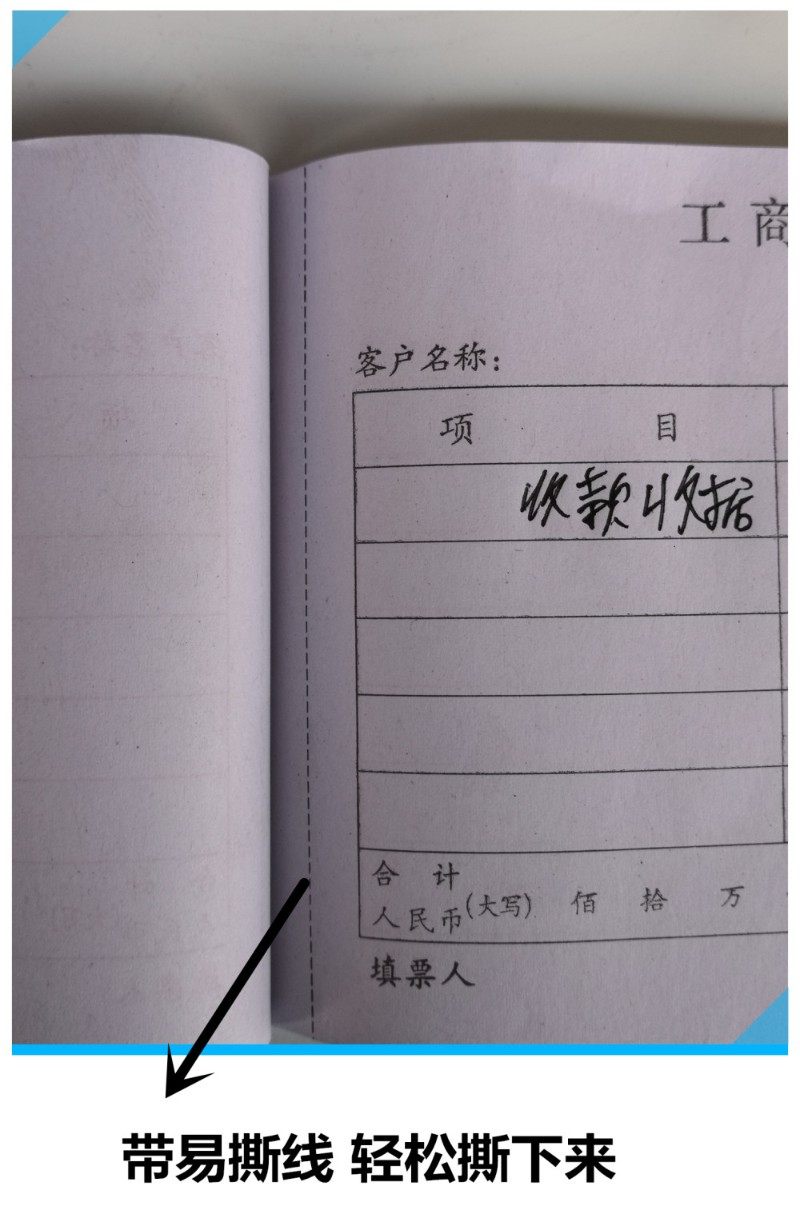 工商
客户名称:
项 目
收款收据
合 计
人民币(大写) 佰 拾 万
填票人
带易撕线 轻松撕下来